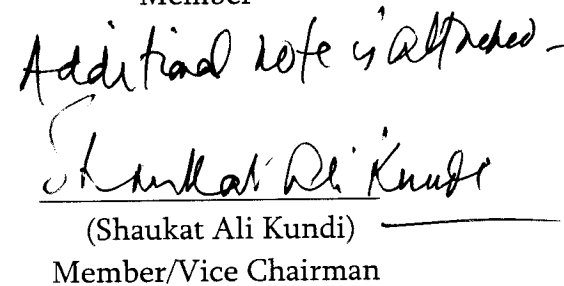 Member
Additional note is attached -
Shaukat Ali Kundi
(Shaukat Ali Kundi)
Member/Vice Chairman